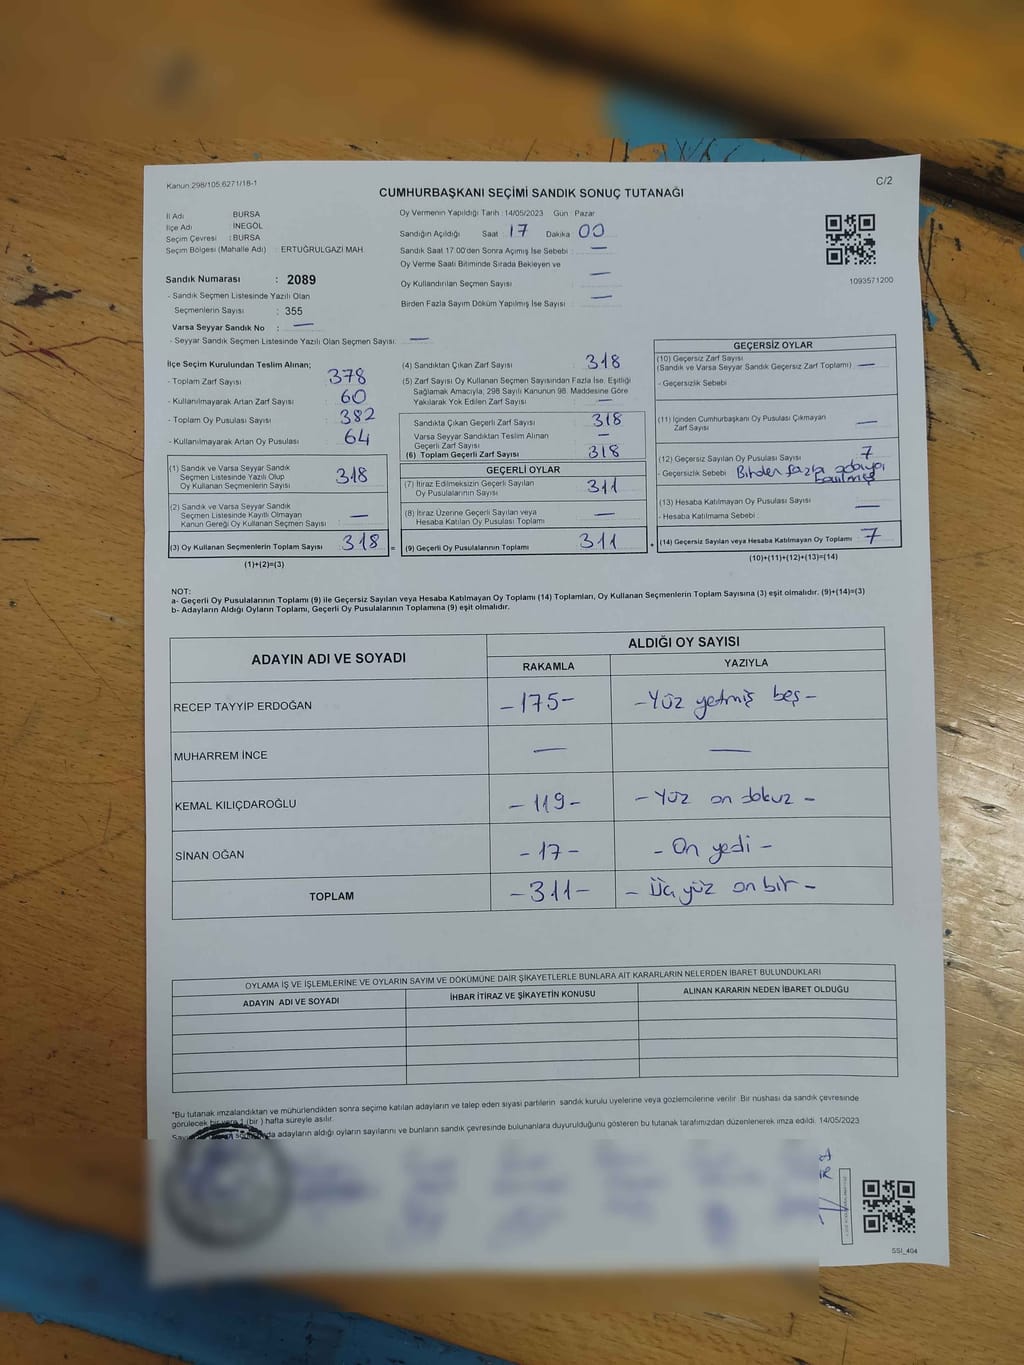 Kanun:298/105;6271/18-1
C/2
CUMHURBAŞKANI SEÇİMİ SANDIK SONUÇ TUTANAĞI
İl Adı BURSA
İlçe Adı İNEGÖL
Seçim Çevresi : BURSA
Seçim Bölgesi (Mahalle Adı) : ERTUĞRULGAZİ MAH.
Oy Vermenin Yapıldığı Tarih : 14/05/2023 Gün : Pazar
Sandığın Açıldığı Saat 17 Dakika 00
Sandık Saat 17:00'den Sonra Açımış İse Sebebi : —
Oy Verme Saati Bitiminde Sırada Bekleyen ve
Oy Kullandırılan Seçmen Sayısı : —
Birden Fazla Sayım Döküm Yapılmış İse Sayısı : —
1093571200
Sandık Numarası : 2089
- Sandık Seçmen Listesinde Yazılı Olan
Seçmenlerin Sayısı : 355
Varsa Seyyar Sandık No : —
- Seyyar Sandık Seçmen Listesinde Yazılı Olan Seçmen Sayısı: —
İlçe Seçim Kurulundan Teslim Alınan;
- Toplam Zarf Sayısı : 378
- Kullanılmayarak Artan Zarf Sayısı : 60
- Toplam Oy Pusulası Sayısı : 382
- Kullanılmayarak Artan Oy Pusulası : 64
(1) Sandık ve Varsa Seyyar Sandık
Seçmen Listesinde Yazılı Olup
Oy Kullanan Seçmenlerin Sayısı : 318
(2) Sandık ve Varsa Seyyar Sandık
Seçmen Listesinde Kayıtlı Olmayan
Kanun Gereği Oy Kullanan Seçmen Sayısı : —
(3) Oy Kullanan Seçmenlerin Toplam Sayısı : 318
(1)+(2)=(3)
=
(4) Sandıktan Çıkan Zarf Sayısı : 318
(5) Zarf Sayısı Oy Kullanan Seçmen Sayısından Fazla İse, Eşitliği
Sağlamak Amacıyla; 298 Sayılı Kanunun 98. Maddesine Göre
Yakılarak Yok Edilen Zarf Sayısı : —
Sandıkta Çıkan Geçerli Zarf Sayısı : 318
Varsa Seyyar Sandıktan Teslim Alınan
Geçerli Zarf Sayısı : —
(6) Toplam Geçerli Zarf Sayısı : 318
GEÇERLİ OYLAR
(7) İtiraz Edilmeksizin Geçerli Sayılan
Oy Pusulalarının Sayısı : 311
(8) İtiraz Üzerine Geçerli Sayılan veya
Hesaba Katılan Oy Pusulası Toplamı : —
(9) Geçerli Oy Pusulalarının Toplamı : 311
+
GEÇERSİZ OYLAR
(10) Geçersiz Zarf Sayısı
(Sandık ve Varsa Seyyar Sandık Geçersiz Zarf Toplamı) : —
- Geçersizlik Sebebi :
(11) İçinden Cumhurbaşkanı Oy Pusulası Çıkmayan
Zarf Sayısı : —
(12) Geçersiz Sayılan Oy Pusulası Sayısı : 7
- Geçersizlik Sebebi : Birden fazla adaya
basılmış
(13) Hesaba Katılmayan Oy Pusulası Sayısı : —
- Hesaba Katılmama Sebebi :
(14) Geçersiz Sayılan veya Hesaba Katılmayan Oy Toplamı : 7
(10)+(11)+(12)+(13)=(14)
NOT:
a- Geçerli Oy Pusulalarının Toplamı (9) ile Geçersiz Sayılan veya Hesaba Katılmayan Oy Toplamı (14) Toplamları, Oy Kullanan Seçmenlerin Toplam Sayısına (3) eşit olmalıdır. (9)+(14)=(3)
b- Adayların Aldığı Oyların Toplamı, Geçerli Oy Pusulalarının Toplamına (9) eşit olmalıdır.
ADAYIN ADI VE SOYADI ALDIĞI OY SAYISI
RAKAMLA YAZIYLA
RECEP TAYYİP ERDOĞAN -175- -Yüz yetmiş beş-
MUHARREM İNCE — —
KEMAL KILIÇDAROĞLU -119- -Yüz on dokuz-
SİNAN OĞAN -17- -On yedi-
TOPLAM -311- -Üç yüz on bir-
OYLAMA İŞ VE İŞLEMLERİNE VE OYLARIN SAYIM VE DÖKÜMÜNE DAİR ŞİKAYETLERLE BUNLARA AİT KARARLARIN NELERDEN İBARET BULUNDUKLARI
ADAYIN ADI VE SOYADI İHBAR İTİRAZ VE ŞİKAYETİN KONUSU ALINAN KARARIN NEDEN İBARET OLDUĞU
*Bu tutanak imzalandıktan ve mühürlendikten sonra seçime katılan adayların ve talep eden siyasi partilerin sandık kurulu üyelerine veya gözlemcilerine verilir. Bir nüshası da sandık çevresinde
görülecek bir yere 1 (bir) hafta süreyle asılır.
adayların aldığı oyların sayılarını ve bunların sandık çevresinde bulunanlara duyurulduğunu gösteren bu tutanak tarafımızdan düzenlenerek imza edildi. 14/05/2023
SSİ_404